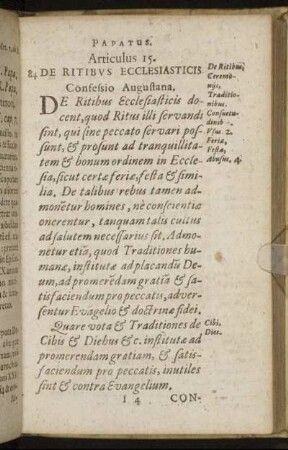 PAPATUS.
Articulus 15.
84 DE RITIBVS ECCLESIASTICIS
Confessio Augustana.
DE Ritibus Ecclesiasticis do-
cent, quod Ritus illi servandi
sint, qui sine peccato servari pos-
sunt, & prosunt ad tranquillita-
tem & bonum ordinem in Eccle-
sia, sicut certæ feriæ, festa & simi-
lia. De talibus rebus tamen ad-
monētur homines, nè conscientiæ
onerentur, tanquam talis cultus
ad salutem necessarius sit. Admo-
netur etiā, quod Traditiones hu-
manæ, institutæ ad placandū De-
um, ad promerēdam gratiā & sa-
tisfaciendum pro peccatis, adver-
sentur Evāgelio & doctrinæ fidei.
Quare vota & Traditiones de
Cibis & Diebus &c. institutæ ad
promerendam gratiam, & satis-
faciendum pro peccatis, inutiles
sint & contra Evangelium.
I 4 CON-
De Ritibus,
Ceremo-
nijs,
Traditio-
nibus.
Consuetu-
dinib.
Vsus 2.
Feriæ,
Festa,
Abusus, 4.
Cibi.
Dies.